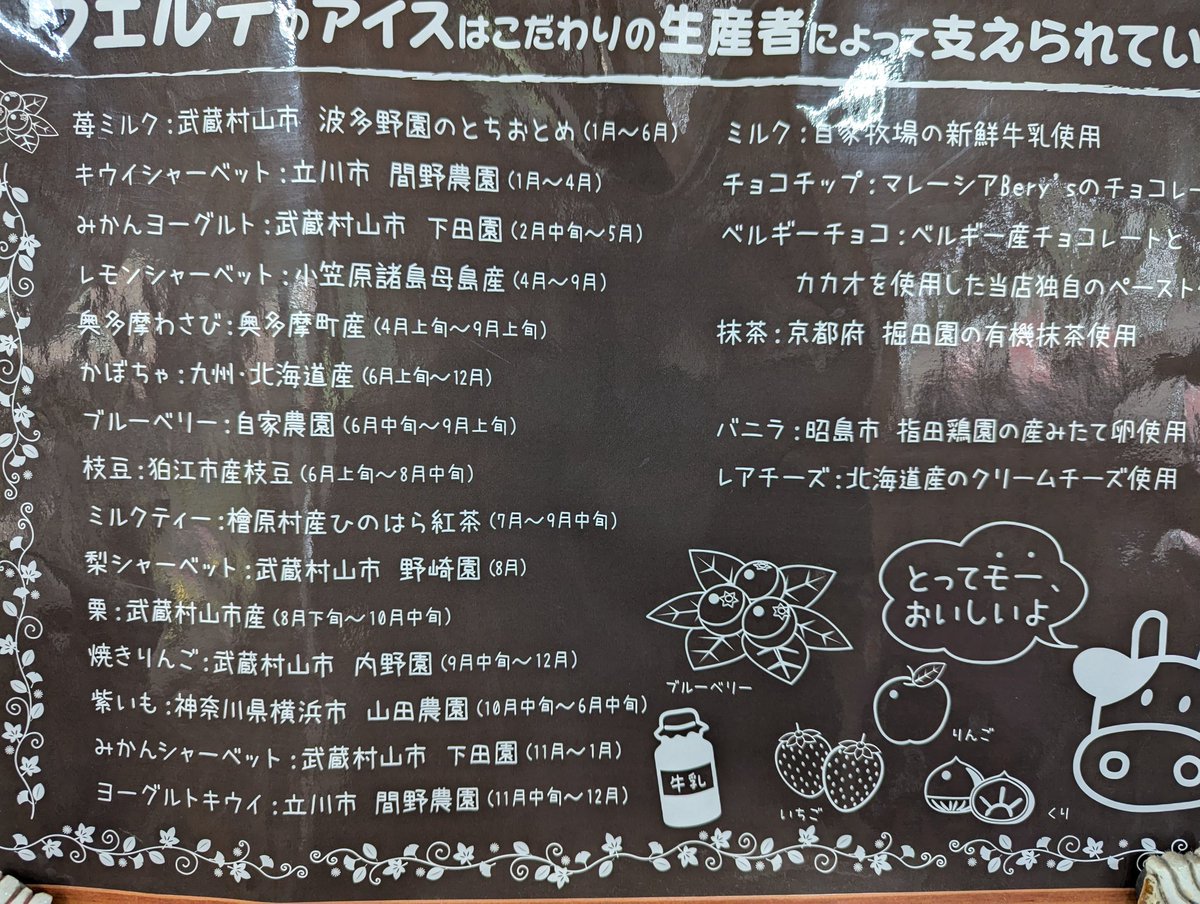 ウエルテのアイスはこだわりの生産者によって支えられてい
苺ミルク:武蔵村山市 波多野園のとちおとめ(1月〜6月)
キウイシャーベット:立川市 間野農園(1月〜4月)
みかんヨーグルト:武蔵村山市 下田園(2月中旬〜5月)
レモンシャーベット:小笠原諸島母島産(4月〜9月)
奥多摩わさび:奥多摩町産(4月上旬〜9月上旬)
かぼちゃ:九州・北海道産(6月上旬〜12月)
ブルーベリー:自家農園(6月中旬〜9月上旬)
枝豆:狛江市産枝豆(6月上旬〜8月中旬)
ミルクティー:檜原村産ひのはら紅茶(7月〜9月中旬)
梨シャーベット:武蔵村山市 野崎園(8月)
栗:武蔵村山市産(8月下旬〜10月中旬)
焼きりんご:武蔵村山市 内野園(9月中旬〜12月)
紫いも:神奈川県横浜市 山田農園(10月中旬〜6月中旬)
みかんシャーベット:武蔵村山市 下田園(11月〜1月)
ヨーグルトキウイ:立川市 間野農園(11月中旬〜12月)
ミルク:自家牧場の新鮮牛乳使用
チョコチップ:マレーシアBery'sのチョコレー
ベルギーチョコ:ベルギー産チョコレートと
カカオを使用した当店独自のペースト
抹茶:京都府 掘田園の有機抹茶使用
バニラ:昭島市 指田鶏園の産みたて卵使用
レアチーズ:北海道産のクリームチーズ使用
とってモー、
おいしいよ
ブルーベリー
牛乳
いちご
りんご
くり